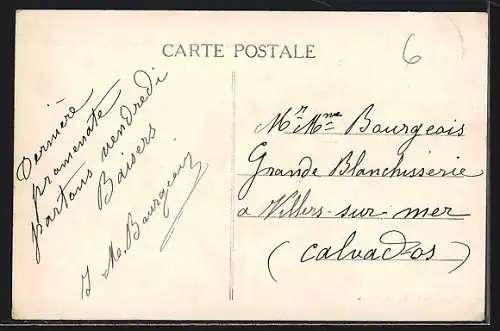 CARTE POSTALE
6
Dernière
promenate
partons vendredi
Baisers
M. Bourgeois
Mr Mme Bourgeois
Grande Blanchisserie
a Villers-sur-mer
(Calvados)